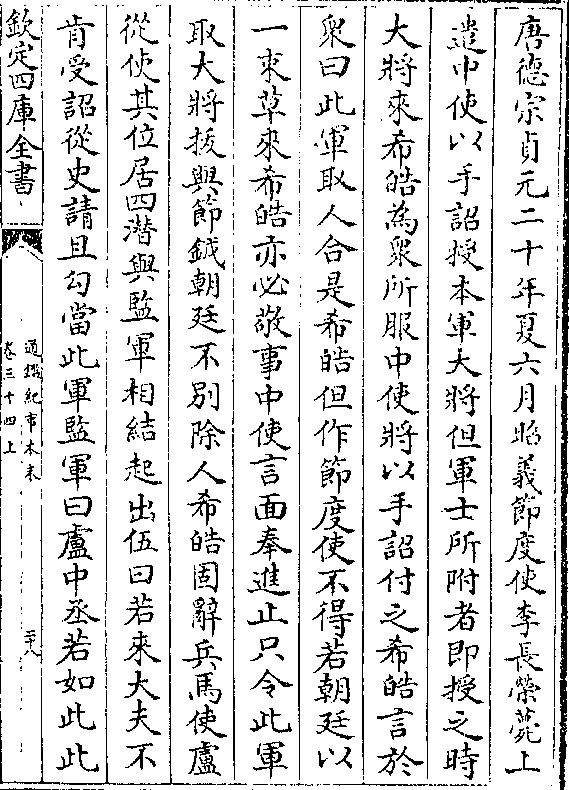 唐德宗貞元二十年夏六月昭義節度使李長榮薨上
遣中使以手詔授本軍大將但軍士所附者即授之時
大將來希皓為衆所服中使將以手詔付之希皓言於
衆曰此軍取人合是希皓但作節度使不得若朝廷以
一束草來希皓亦必敬事中使言面奉進止只令此軍
取大將拔與節鉞朝廷不別除人希皓固辭兵馬使盧
從史其位居四潛與監軍相結起出伍曰若來大夫不
肯受詔從史請且勾當此軍監軍曰盧中丞若如此此
欽定四庫全書
通鑑紀事本末
卷三十四上
二十八